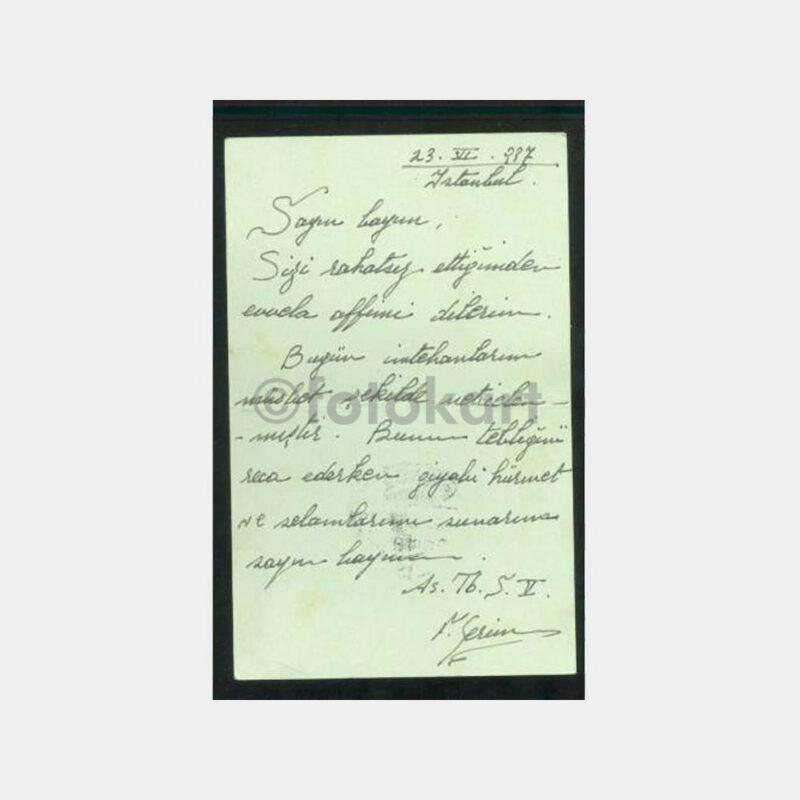 23. VI. 937
Istanbul.
Sayın bayım,
Sizi rahatsız ettiğimden
evvela affımı dilerim.
Bugün imtehanlarım
müsbet şekilde neticelen-
-miştir. Bunun tebliğini
reca ederken gıyabi hürmet
ve selamlarımı sunarım
sayın bayım.
As. Tb. S. V.
©fotokart